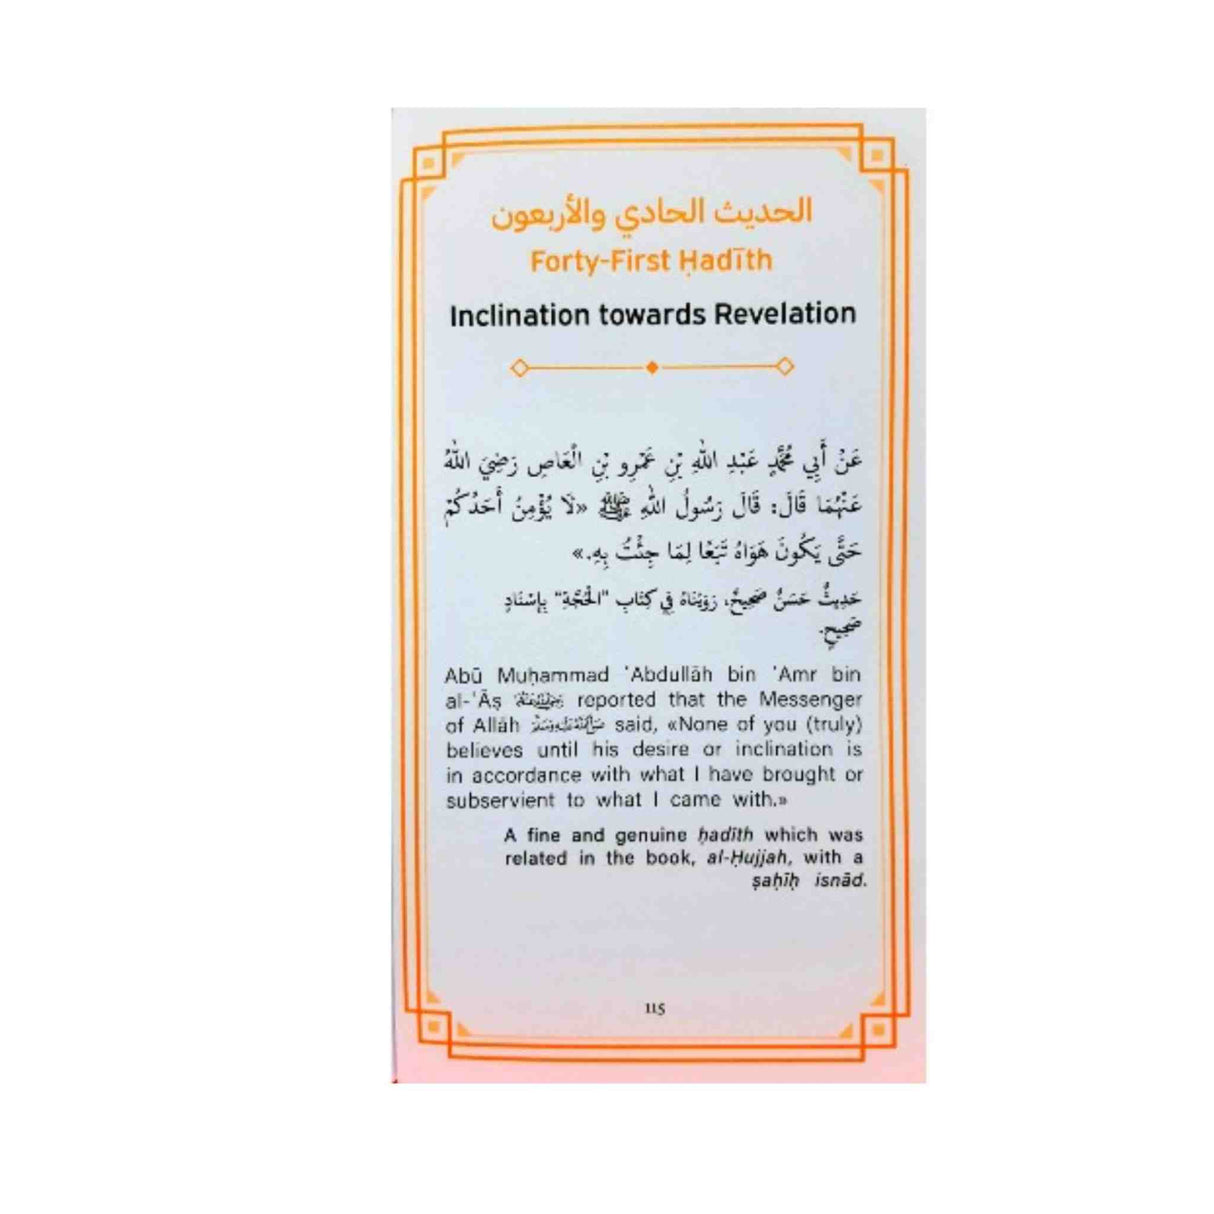 الحديث الحادي والأربعون
Forty-First Ḥadīth
Inclination towards Revelation
عَنْ أَبِي مُحَمَّدٍ عَبْدِ اللهِ بْنِ عَمْرِو بْنِ الْعَاصِ رَضِيَ اللهُ
عَنْهُمَا قَالَ: قَالَ رَسُولُ اللهِ ﷺ «لَا يُؤْمِنُ أَحَدُكُمْ
حَتَّى يَكُونَ هَوَاهُ تَبَعًا لِمَا جِئْتُ بِهِ.»
حَدِيثٌ حَسَنٌ صَحِيحٌ، رَوَيْنَاهُ فِي كِتَابِ "الْحُجَّةِ" بِإِسْنَادٍ
صَحِيحٍ.
Abū Muḥammad ʿAbdullāh bin ʿAmr bin
al-ʿĀṣ reported that the Messenger
of Allāh ﷺ said, «None of you (truly)
believes until his desire or inclination is
in accordance with what I have brought or
subservient to what I came with.»
A fine and genuine ḥadīth which was
related in the book, al-Ḥujjah, with a
ṣaḥīḥ isnād.
115